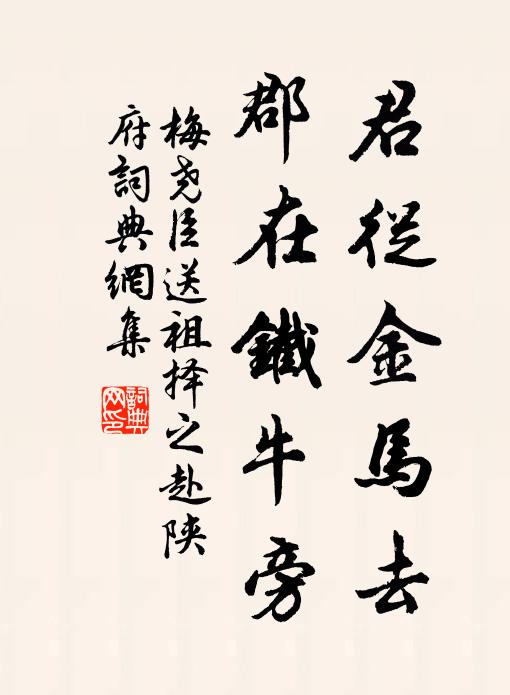 君從金馬去
郡在鐵牛旁
梅尧臣送祖择之赴陝
府詞典網集
詞典
网印